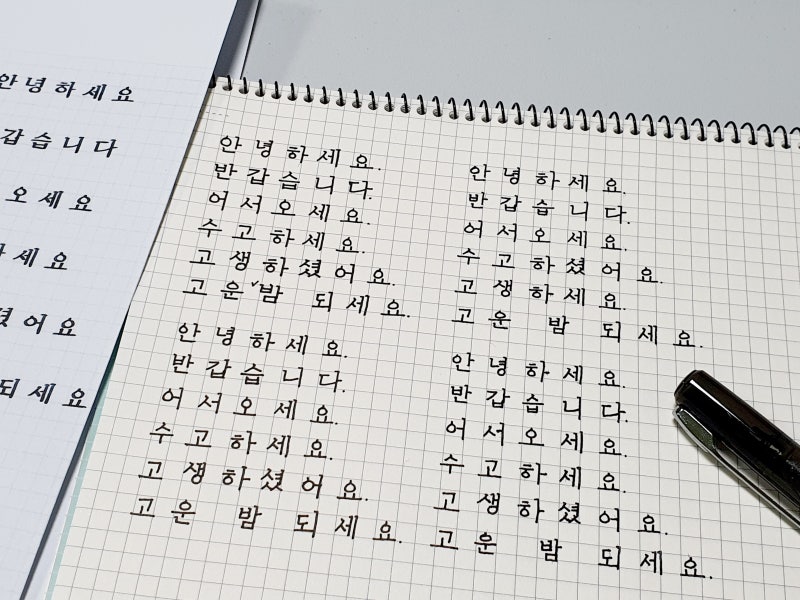 안녕하세요
갑습니다
오세요
하세요
셨어요
되세요
안녕하세요.
반갑습니다.
어서오세요.
수고하세요.
고생하셨어요.
고운 밤 되세요.
안녕하세요.
반갑습니다.
어서오세요.
수고하셨어요.
고생하세요.
고운 밤 되세요.
안녕하세요.
반갑습니다.
어서오세요.
수고하세요.
고생하셨어요.
고운 밤 되세요.
안녕하세요.
반갑습니다.
어서오세요.
수고하세요.
고생하셨어요.
고운 밤 되세요.